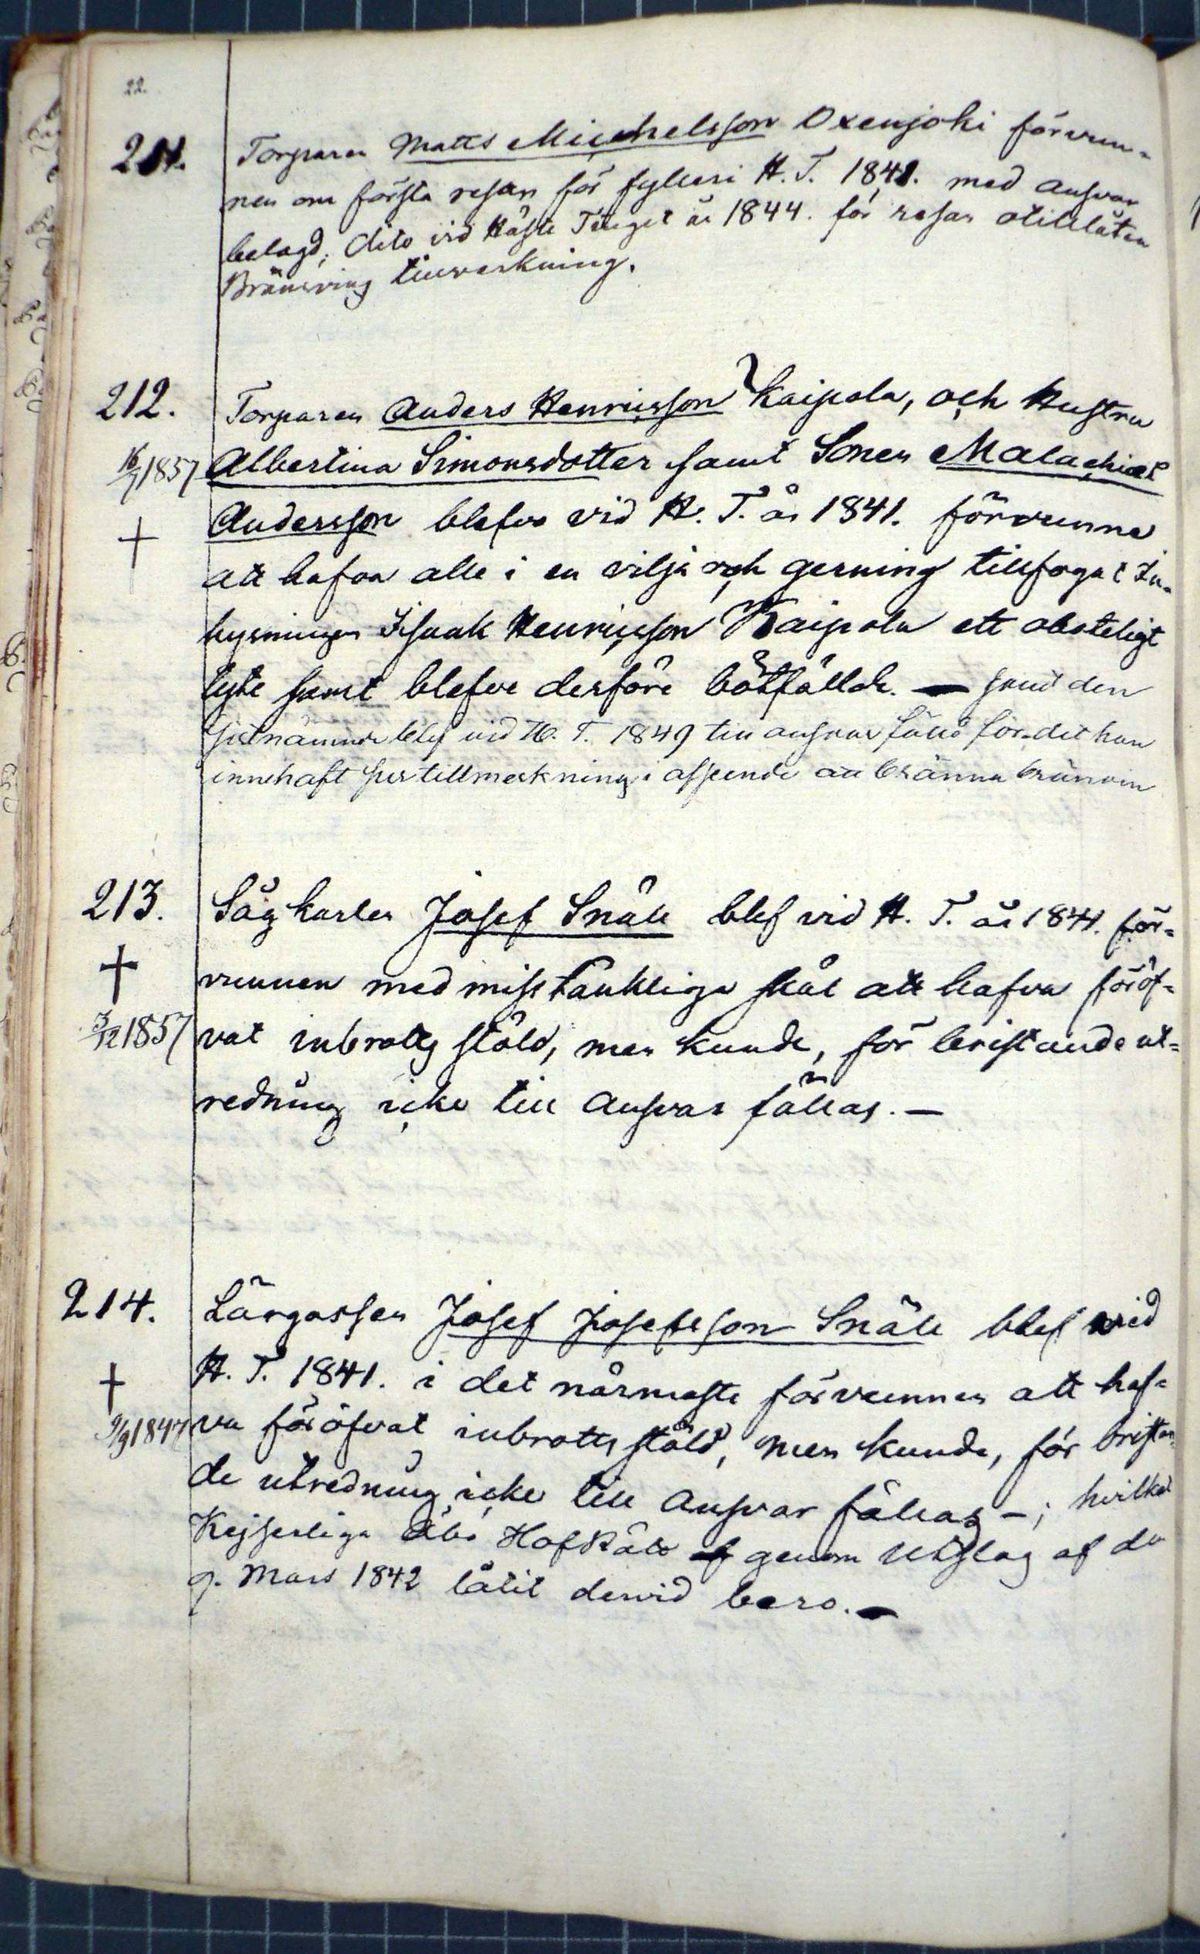 22.
211. Torparen Matts Michelsson Oxenjoki förvun-
nen om första resan för fylleri H. T. 1841. med ansvar
belagd; dito vid Höste Tinget år 1844. för resan otillåten
Bränviny tillverkning.
212. Torparen Anders Henricsson Kaipola, och Hustru
16/7 1857 Albertina Simonsdotter samt Sonen Malachias
† Andersson blefvo vid H. T. år 1841. förvunne
att hafva alle i en vilja och gerning tillfogat In-
hysningen Isaak Henricsson Kaipola ett oboteligt
lyte samt blefvo derföre bötfällde. — samt den
sistnämnde blef vid H. T. 1849 till ansvar fälld för det han
innehaft tillmerkning i afseende att bränna bränvin
213. Sågkarlen Josef Snäll blef vid H. T. år 1841. för-
† vunnen med misstänkliga skäl att hafva föröf-
3/12 1857 vat inbrotts stöld, men kunde, för bristande ut-
redning icke till Ansvar fällas. —
214. Lärgossen Josef Josefsson Snäll blef vid
† H. T. 1841. i det närmaste förvunnen att haf-
9/9 1847 va föröfvat inbrotts stöld, men kunde, för bristan-
de utredning icke till Ansvar fällas —; hvilket
Kejserliga Åbo HofRätt genom Utslag af de
9. Mars 1842 låtit dervid bero. —